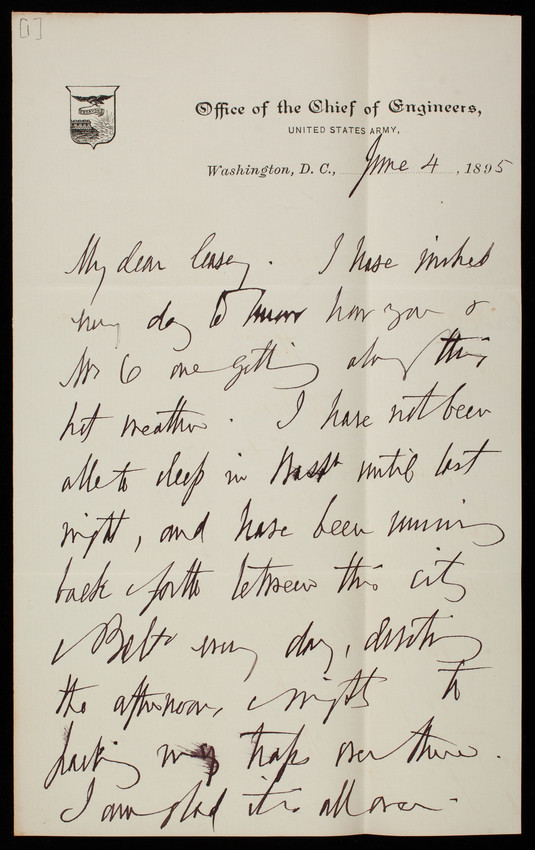 [1]
Office of the Chief of Engineers,
UNITED STATES ARMY,
Washington, D. C., June 4, 1895
My dear Casey. I have wished
every day to know how you &
Mrs C are getting along this
hot weather. I have not been
able to sleep in Washn until last
night, and have been running
back & forth between this city
& Balto every day, devoting
the afternoons & nights to
packing my traps over there.
I am glad it is all over.